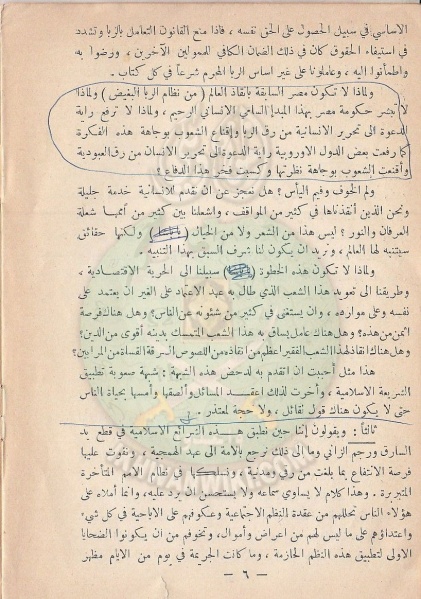 الاساسي في سبيل الحصول على الحق نفسه ، فاذا منع القانون التعامل بالربا وتشدد
في استيفاء الحقوق كان في ذلك الضمان الكافي للممولين الآخرين ، ورضوا به
واطمأنوا إليه ، وعاملونا على غير اساس الربا المحرم شرعاً في كل كتاب .
ولماذا لا تكون مصر السابقة بانقاذ العالم ( من نظام الربا البغيض ) ولماذا
لا تبشر حكومة مصر بهذا المبدأ السامي الانساني الرحيم ، ولماذا لا ترفع راية
الدعوة الى تحرير الانسانية من رق الربا وإقناع الشعوب بوجاهة هذه الفكرة
كما رفعت بعض الدول الاوروبية راية الدعوة الى تحرير الانسان من رق العبودية
وأقنعت الشعوب بوجاهة نظرتها وكسبت فخر هذا الدفاع ؟
ولم الخوف وفيم اليأس ؟ هل نعجز عن ان نقدم للانسانية خدمة جليلة
ونحن الذين أنقذناها في كثير من المواقف ، واشعلنا بين كثير من أممها شعلة
العرفان والنور ؟ ليس هذا من الشعر ولا من الخيال ولكنها حقائق
سيتنبه لها العالم ، ونريد ان يكون لنا شرف السبق بهذا التنبيه .
ولماذا لا تكون هذه الخطوة سبيلنا الى الحرية الاقتصادية ،
وطريقنا الى تعويد هذا الشعب الذي طال به عهد الاعتماد على الغير ان يعتمد على
نفسه وعلى موارده ، وان يستغني في كثير من شئونه عن الناس؟ وهل هناك فرصة
اثمن من هذه؟ وهل هناك عامل يساق به هذا الشعب المتمسك بدينه أقوى من الدين؟
وهل هناك انقاذ لهذا الشعب الفقير اعظم من انقاذه من اللصوص السرقة القساة من المرابين؟
هذا مثل أحببت ان اتقدم به لدحض هذه الشبهة : شبهة صعوبة تطبيق
الشريعة الاسلامية ، وأخرت لذلك اعقد المسائل وألصقها وأمسها بحياة الناس
حتى لا يكون هناك قول لقائل ، ولا حجة لمعتذر .
ثالثاً : ويقولون إننا حين نطبق هذه الشرائع الاسلامية في قطع يد
السارق ورجم الزاني وما الى ذلك نرجع بالامة الى عهد الهمجية ، ونفوت عليها
فرصة الانتفاع بما بلغت من رقي ومدنية ، ونسلكها في نظام الامم المتأخرة
المتبربرة . وهذا كلام لا يساوي سماعه ولا يستحسن ان يرد عليه ، وانما أملاه على
هؤلاء الناس تحللهم من عقدة النظم الاجتماعية وعكوفهم على الاباحية في كل شيء
واعتداؤهم على ما ليس لهم من اعراض وأموال ، وتخوفهم من أن يكونوا الضحايا
الاولى لتطبيق هذه النظم الحازمة ، وما كانت الجريمة في يوم من الايام مظهر
— ٦ —